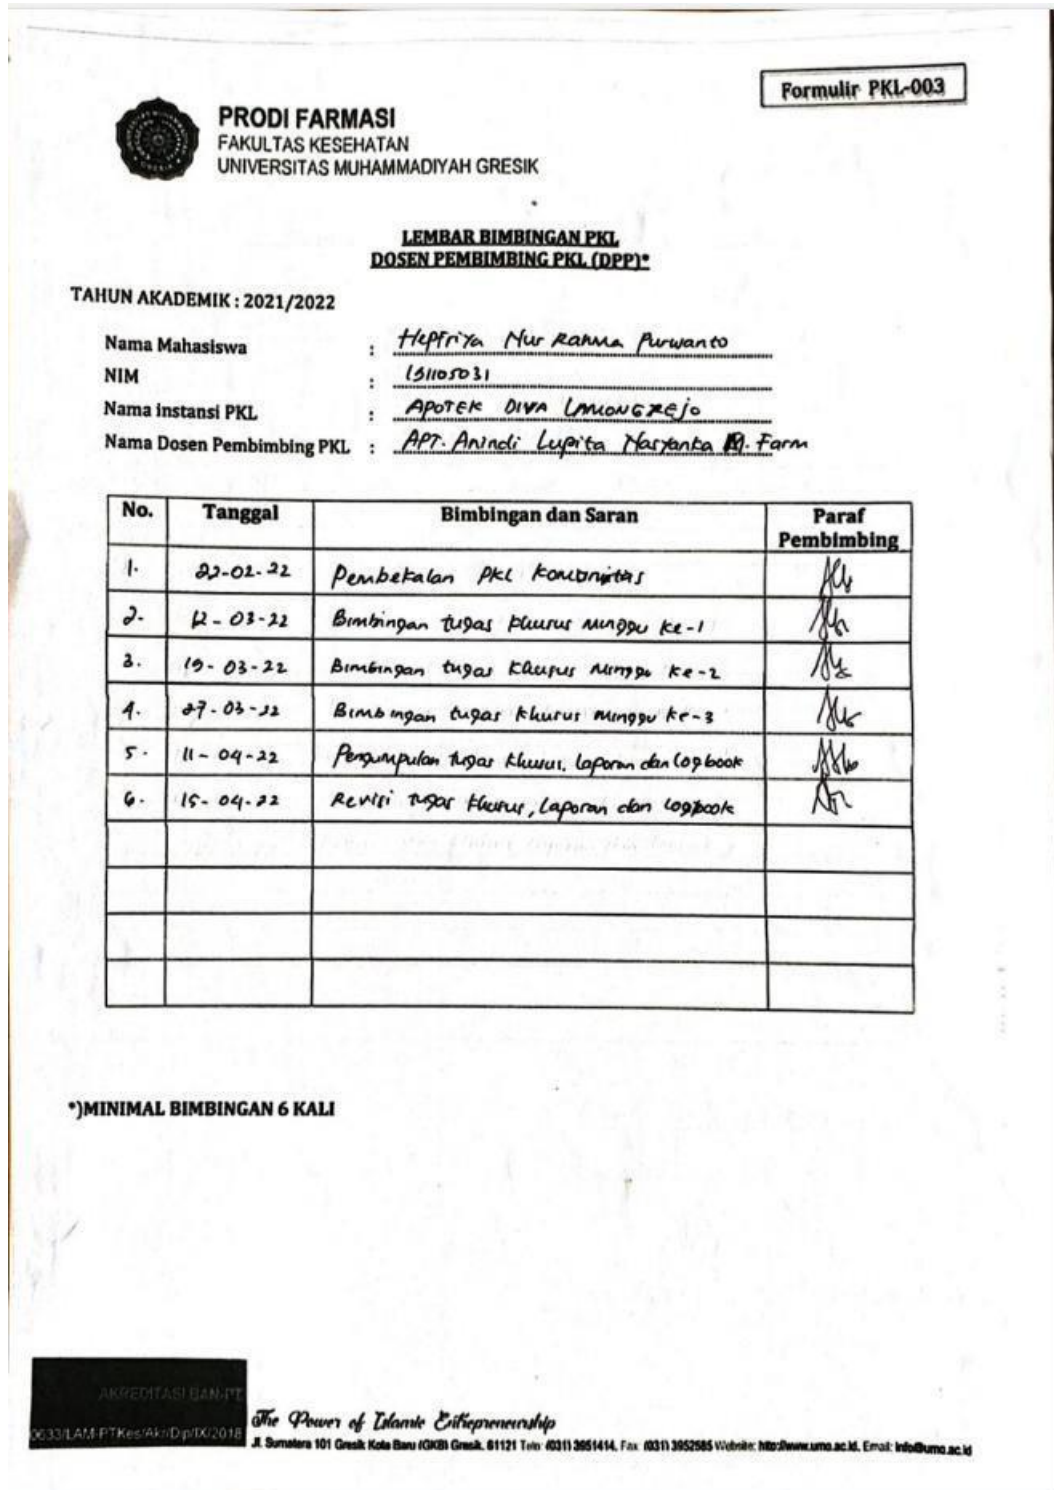 Formulir PKL-003
PRODI FARMASI
FAKULTAS KESEHATAN
UNIVERSITAS MUHAMMADIYAH GRESIK
LEMBAR BIMBINGAN PKL
DOSEN PEMBIMBING PKL (DPP)*
TAHUN AKADEMIK : 2021/2022
Nama Mahasiswa : Hepfriya Nur Rahma Purwanto
NIM : 151105031
Nama instansi PKL : APOTEK DIVA LAMONGREJO
Nama Dosen Pembimbing PKL : APT. Anindi Lupita Nasyanka M. Farm
No. Tanggal Bimbingan dan Saran Paraf Pembimbing
1. 22-02-22 Pembekalan PKL Komunitas
2. 12-03-22 Bimbingan tugas khusus minggu ke-1
3. 19-03-22 Bimbingan tugas khusus minggu ke-2
4. 27-03-22 Bimbingan tugas khusus minggu ke-3
5. 11-04-22 Pengumpulan tugas khusus, laporan dan logbook
6. 15-04-22 Revisi tugas khusus, laporan dan logbook
*)MINIMAL BIMBINGAN 6 KALI
AKREDITASI BAN-PT
0633/LAM-PTKes/Akr/Dip/IX/2018
The Power of Islamic Entrepreneurship
Jl. Sumatera 101 Gresik Kota Baru (GKB) Gresik, 61121 Telp: (031) 3951414, Fax: (031) 3952585 Website: http://www.umg.ac.id, Email: info@umg.ac.id